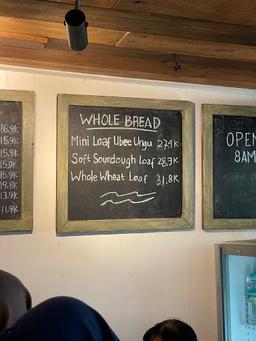 16.9K
15.9K
15.9K
15.9K
15.9K
19.8K
13.9K
11.9K
WHOLE BREAD
Mini Loaf Ubee Ungu 27.9K
Soft Sourdough Loaf 28.9K
Whole Wheat Loaf 31.8K
OPEN
8AM